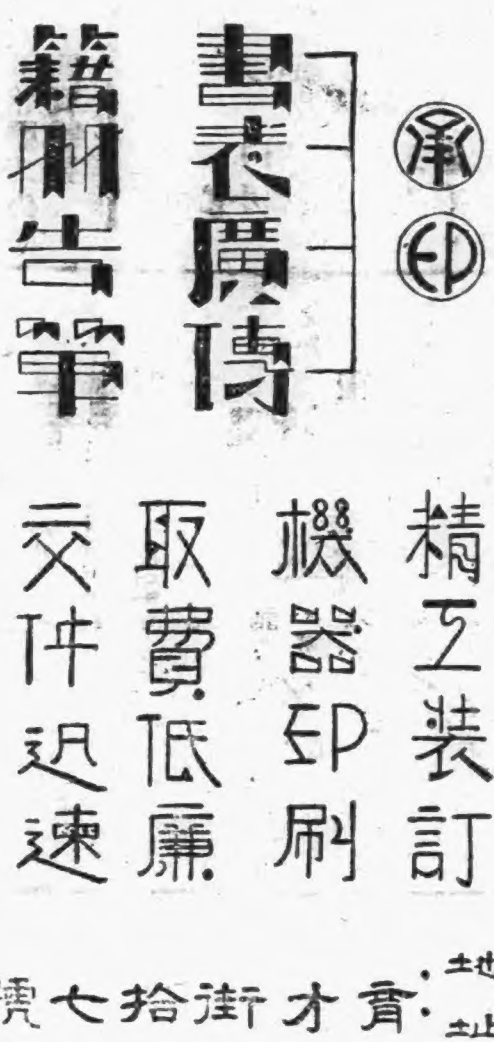 承印
書籍
表冊
廣告
傳單
精工裝訂
機器印刷
取費低廉
交件迅速
地址：育才街拾七號